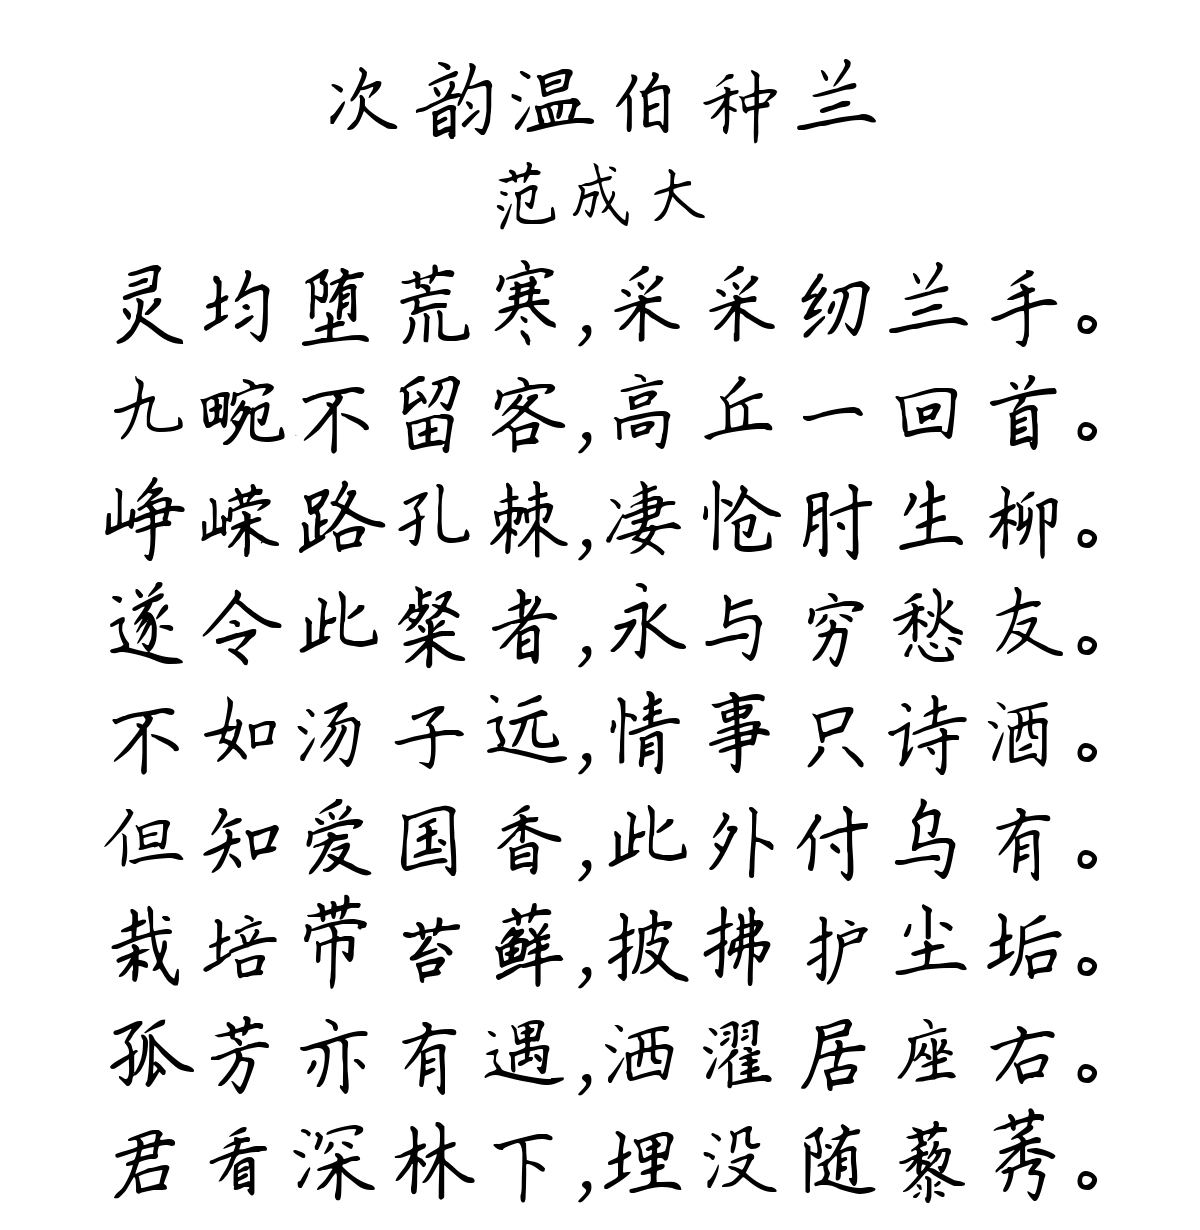 次韵温伯种兰
范成大
灵均堕荒寒,采采纫兰手。
九畹不留客,高丘一回首。
峥嵘路孔棘,凄怆肘生柳。
遂令此粲者,永与穷愁友。
不如汤子远,情事只诗酒。
但知爱国香,此外付乌有。
栽培带苔藓,披拂护尘垢。
孤芳亦有遇,洒濯居座右。
君看深林下,埋没随藜莠。